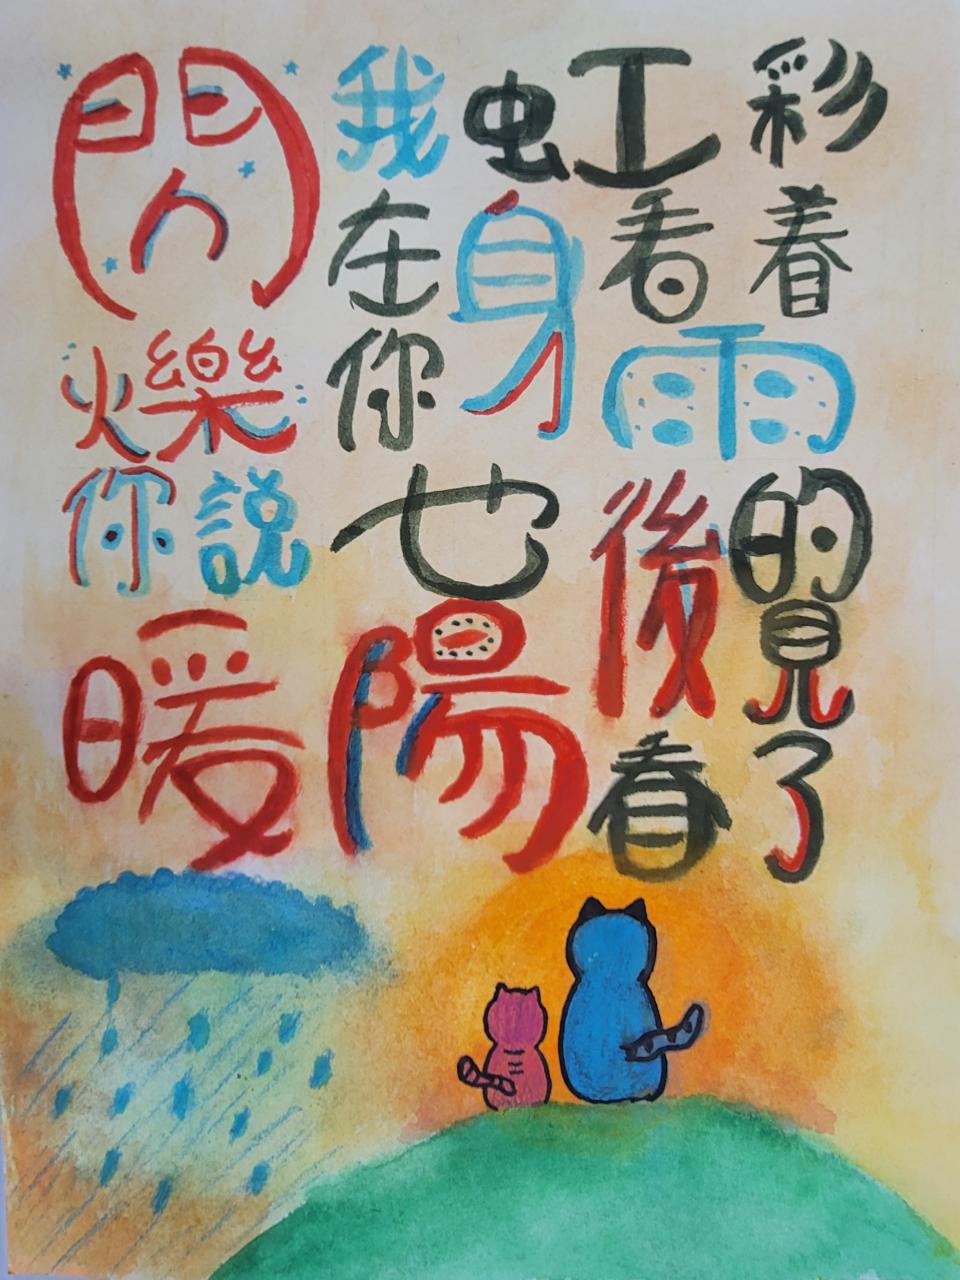 彩着雨的見了
虹看後春
我身在你也陽
閃爍你說暖